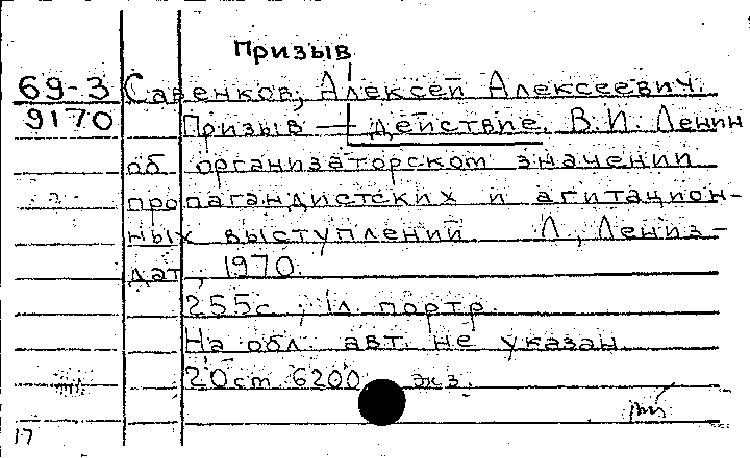 Призыв
69-3 Савенков, Алексей Алексеевич.
9170 Призыв — действие. В.И. Ленин
об организаторском значении
пропагандистских и агитацион-
ных выступлений Л., Лениз-
дат, 1970.
255с.; 1л. портр.
На обл. авт. не указан
20ст. 6200 экз.
17